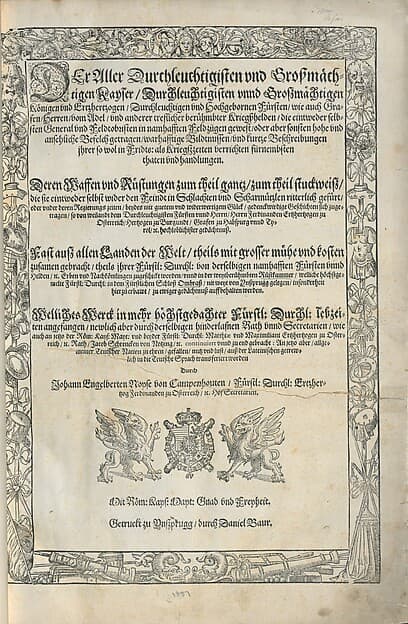 DEr Aller Durchleuchtigisten vnd Großmäch-
tigen Kayser / Durchleuchtigisten vnnd Großmächtigen
Königen vnd Ertzhertzogen / Durchleuchtigen vnd Hochgebornen Fürsten / wie auch Gra-
fen / Herren / vom Adel / vnd anderer treflicher berühmbter Kriegßhelden / die eintweder selb-
sten General vnd Feldtobristen in namhafften Feldzügen gewest / oder aber sonsten hohe vnd
ansehliche Befelch getragen / warhafftige Bildnussen / vnd kurtze Beschreibungen
jhrer so wol in Fridts: als Kriegszeiten verrichten fürnembsten
thaten vnd handlungen.
Deren Waffen vnd Rüstungen zum theil gantz / zum theil stuckweiß /
die sie eintweder selbst wider den Feindt in Schlachten vnd Scharmützlen ritterlich gefürt /
oder vnder deren Regierungs zeiten / beydes mit gutem vnd widerwertigem Glück / gedenckwirdige Geschichten sich zuge-
tragen / so von weilandt dem Durchleuchtigisten Fürsten vnnd Herrn / Herrn Ferdinanden Ertzhertzogen zu
Osterreich / Hertzogen zu Burgundt / Grafen zu Habspurg vnnd Ty-
rol / rc. hochlöblichister gedechtnuß.
Fast auß allen Landen der Welt / theils mit grosser mühe vnd kosten
zusamen gebracht / theils jhrer Fürstl: Durchl: von derselbigen namhafften Fürsten vnnd
Helden / rc. Erben vnd Nachkömlingen zugeschickt worden / vnnd in der weytberühmbten Rüstkammer / welche höchstge-
melte Fürstl: Durchl: in dem Fürstlichen Schloß Ombraß / nit weyt von Ynsprugg gelegen / insonderheit
hierzu erbawt / zu ewiger gedächtnuß auffbehalten werden.
Welliches Werck in mehr höchstgedachter Fürstl: Durchl: lebzei-
ten angefangen / newlich aber durch derselbigen hinderlaßnen Rath vnnd Secretarien / wie
auch an jetzo der Röm: Kays: Mayt: vnd beyder Fürstl: Durchl: Matthiae vnd Maximiliani Ertzhertzogen zu Oster-
reich / rc. Rath / Jacob Schrencken von Notzing / rc. continuiert vnnd zu end gebracht: An jetzo aber / allge-
mainer Teutscher Nation zu ehren / gefallen / nutz vnd lust / auß der Lateinischen getrew-
lich in die Teutsche Sprach transferiert worden
Durch
Johann Engelberten Noyse von Campenhouten / Fürstl: Durchl: Ertzher-
tzog Ferdinanden zu Osterreich / rc. Hof Secretarien.
Mit Röm: Kays: Mayt: Gnad vnd Freyheit.
Getruckt zu Ynsprugg / durch Daniel Baur.